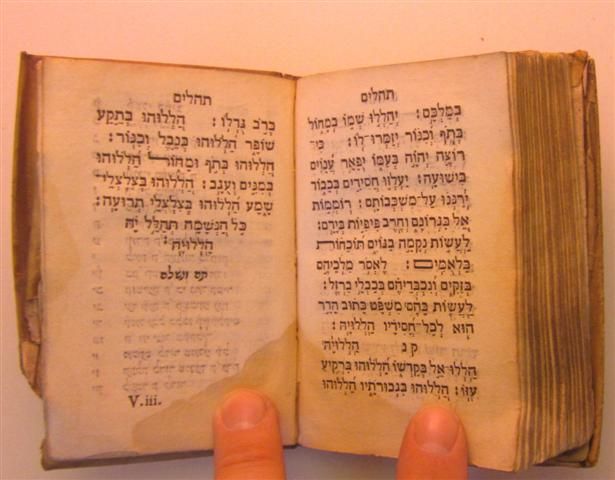 תהלים
בְּמַלְכָּם: יְהַלְלוּ שְׁמוֹ בְמָחוֹל
בְּתֹף וְכִנּוֹר יְזַמְּרוּ־לוֹ: כִּי־
רוֹצֶה יְהוָה בְּעַמּוֹ יְפָאֵר עֲנָוִים
בִּישׁוּעָה: יַעְלְזוּ חֲסִידִים בְּכָבוֹד
יְרַנְּנוּ עַל־מִשְׁכְּבוֹתָם: רוֹמְמוֹת
אֵל בִּגְרוֹנָם וְחֶרֶב פִּיפִיּוֹת בְּיָדָם:
לַעֲשׂוֹת נְקָמָה בַגּוֹיִם תּוֹכֵחוֹת
בַּלְאֻמִּים: לֶאְסֹר מַלְכֵיהֶם
בְּזִקִּים וְנִכְבְּדֵיהֶם בְּכַבְלֵי בַרְזֶל:
לַעֲשׂוֹת בָּהֶם מִשְׁפָּט כָּתוּב הָדָר
הוּא לְכָל־חֲסִידָיו הַלְלוּיָהּ:
ק נ הַלְלוּיָהּ
הַלְלוּ אֵל בְּקָדְשׁוֹ הַלְלוּהוּ בִּרְקִיעַ
עֻזּוֹ: הַלְלוּהוּ בִגְבוּרֹתָיו הַלְלוּהוּ
תהלים
כְּרֹב גֻּדְלוֹ: הַלְלוּהוּ בְּתֵקַע
שׁוֹפָר הַלְלוּהוּ בְּנֵבֶל וְכִנּוֹר:
הַלְלוּהוּ בְּתֹף וּמָחוֹל הַלְלוּהוּ
בְּמִנִּים וְעֻגָב: הַלְלוּהוּ בְצִלְצְלֵי
שָׁמַע הַלְלוּהוּ בְּצִלְצְלֵי תְרוּעָה:
כֹּל הַנְּשָׁמָה תְּהַלֵּל יָהּ
הַלְלוּיָהּ
תם ונשלם
V.iii.